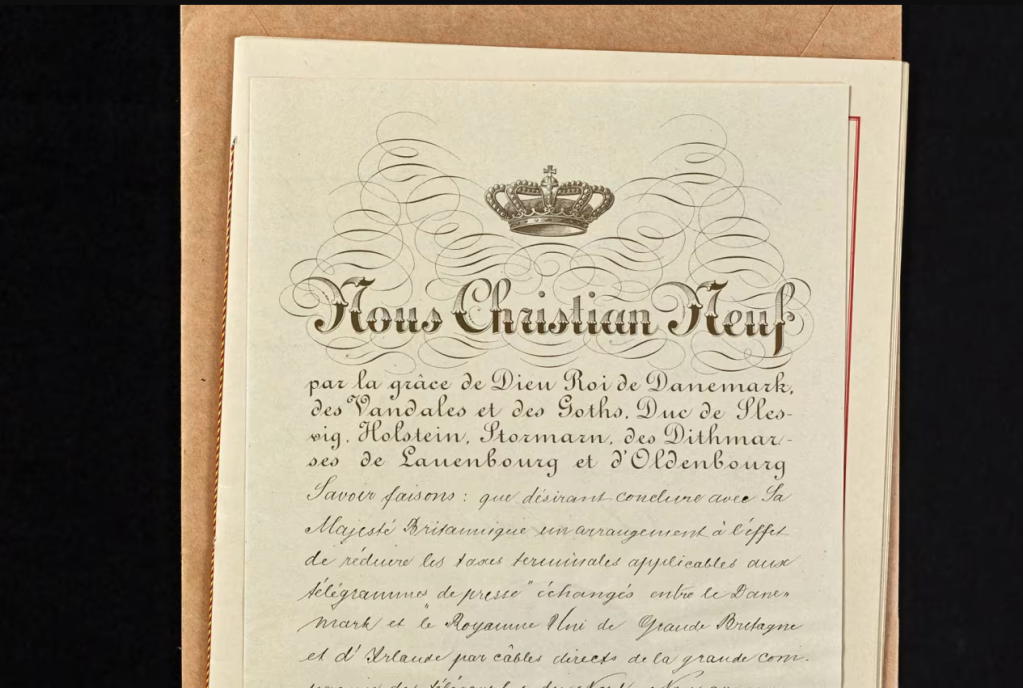 Nous Christian Neuf
par la grâce de Dieu Roi de Danemark,
des Vandales et des Goths, Duc de Sles-
vig, Holstein, Stormarn, des Dithmar-
ses de Lauenbourg et d'Oldenbourg
Savoir faisons: que désirant conclure avec Sa
Majesté Britannique un arrangement à l'effet
de réduire les taxes terminales applicables aux
télégrammes "de presse" échangés entre le Dane-
mark et le Royaume Uni de Grande Bretagne
et d'Irlande par câbles directs de la grande com-